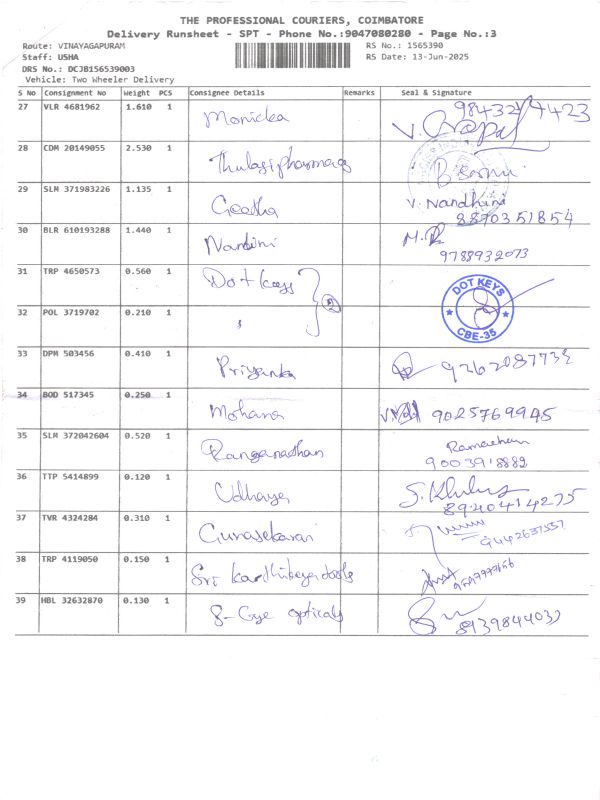 THE PROFESSIONAL COURIERS, COIMBATORE
Delivery Runsheet - SPT - Phone No.:9047080280 - Page No.:3
Route: VINAYAGAPURAM RS No.: 1565390
Staff: USHA RS Date: 13-Jun-2025
DRS No.: DCJB156539003
Vehicle: Two Wheeler Delivery
S No Consignment No Weight PCS Consignee Details Remarks Seal & Signature
27 VLR 4681962 1.610 1 Monicka
28 CDM 20149055 2.530 1 Thulasi pharmacy
29 SLM 371983226 1.135 1 Geetha V. Nandhini 8870351854
30 BLR 610193288 1.440 1 Nandini 9788932073
31 TRP 4650573 0.560 1 Dot keys DOT KEYS CBE-35
32 POL 3719702 0.210 1 "
33 DPM 503456 0.410 1 Priyanka
34 BOD 517345 0.250 1 Mohana 9025769945
35 SLM 372042604 0.520 1 Ranganadhan
36 TTP 5414899 0.120 1 Udhaya
37 TVR 4324284 0.310 1 Gunasekaran
38 TRP 4119050 0.150 1 Sri
39 HBL 32632870 0.130 1 opticals